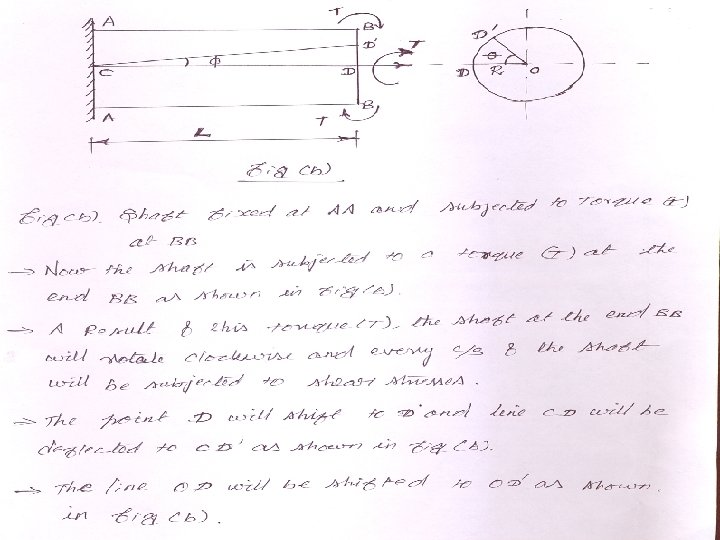 A
T
B
D'
T
C
Φ
D
A
B
T
L
D'
θ
D
R
O
Fig (b)
Fig (b). Shaft fixed at AA and subjected to Torque (T)
at BB
→ Now the shaft is subjected to a torque (T) at the
end BB as shown in Fig (b).
→ A Result of this torque (T), the shaft at the end BB
will rotate clockwise and every c/s of the shaft
will be subjected to shear stresses.
→ The point D will shift to D' and line CD will be
deflected to CD' as shown in Fig (b).
→ The line OD will be shifted to OD' as shown.
in Fig (b).